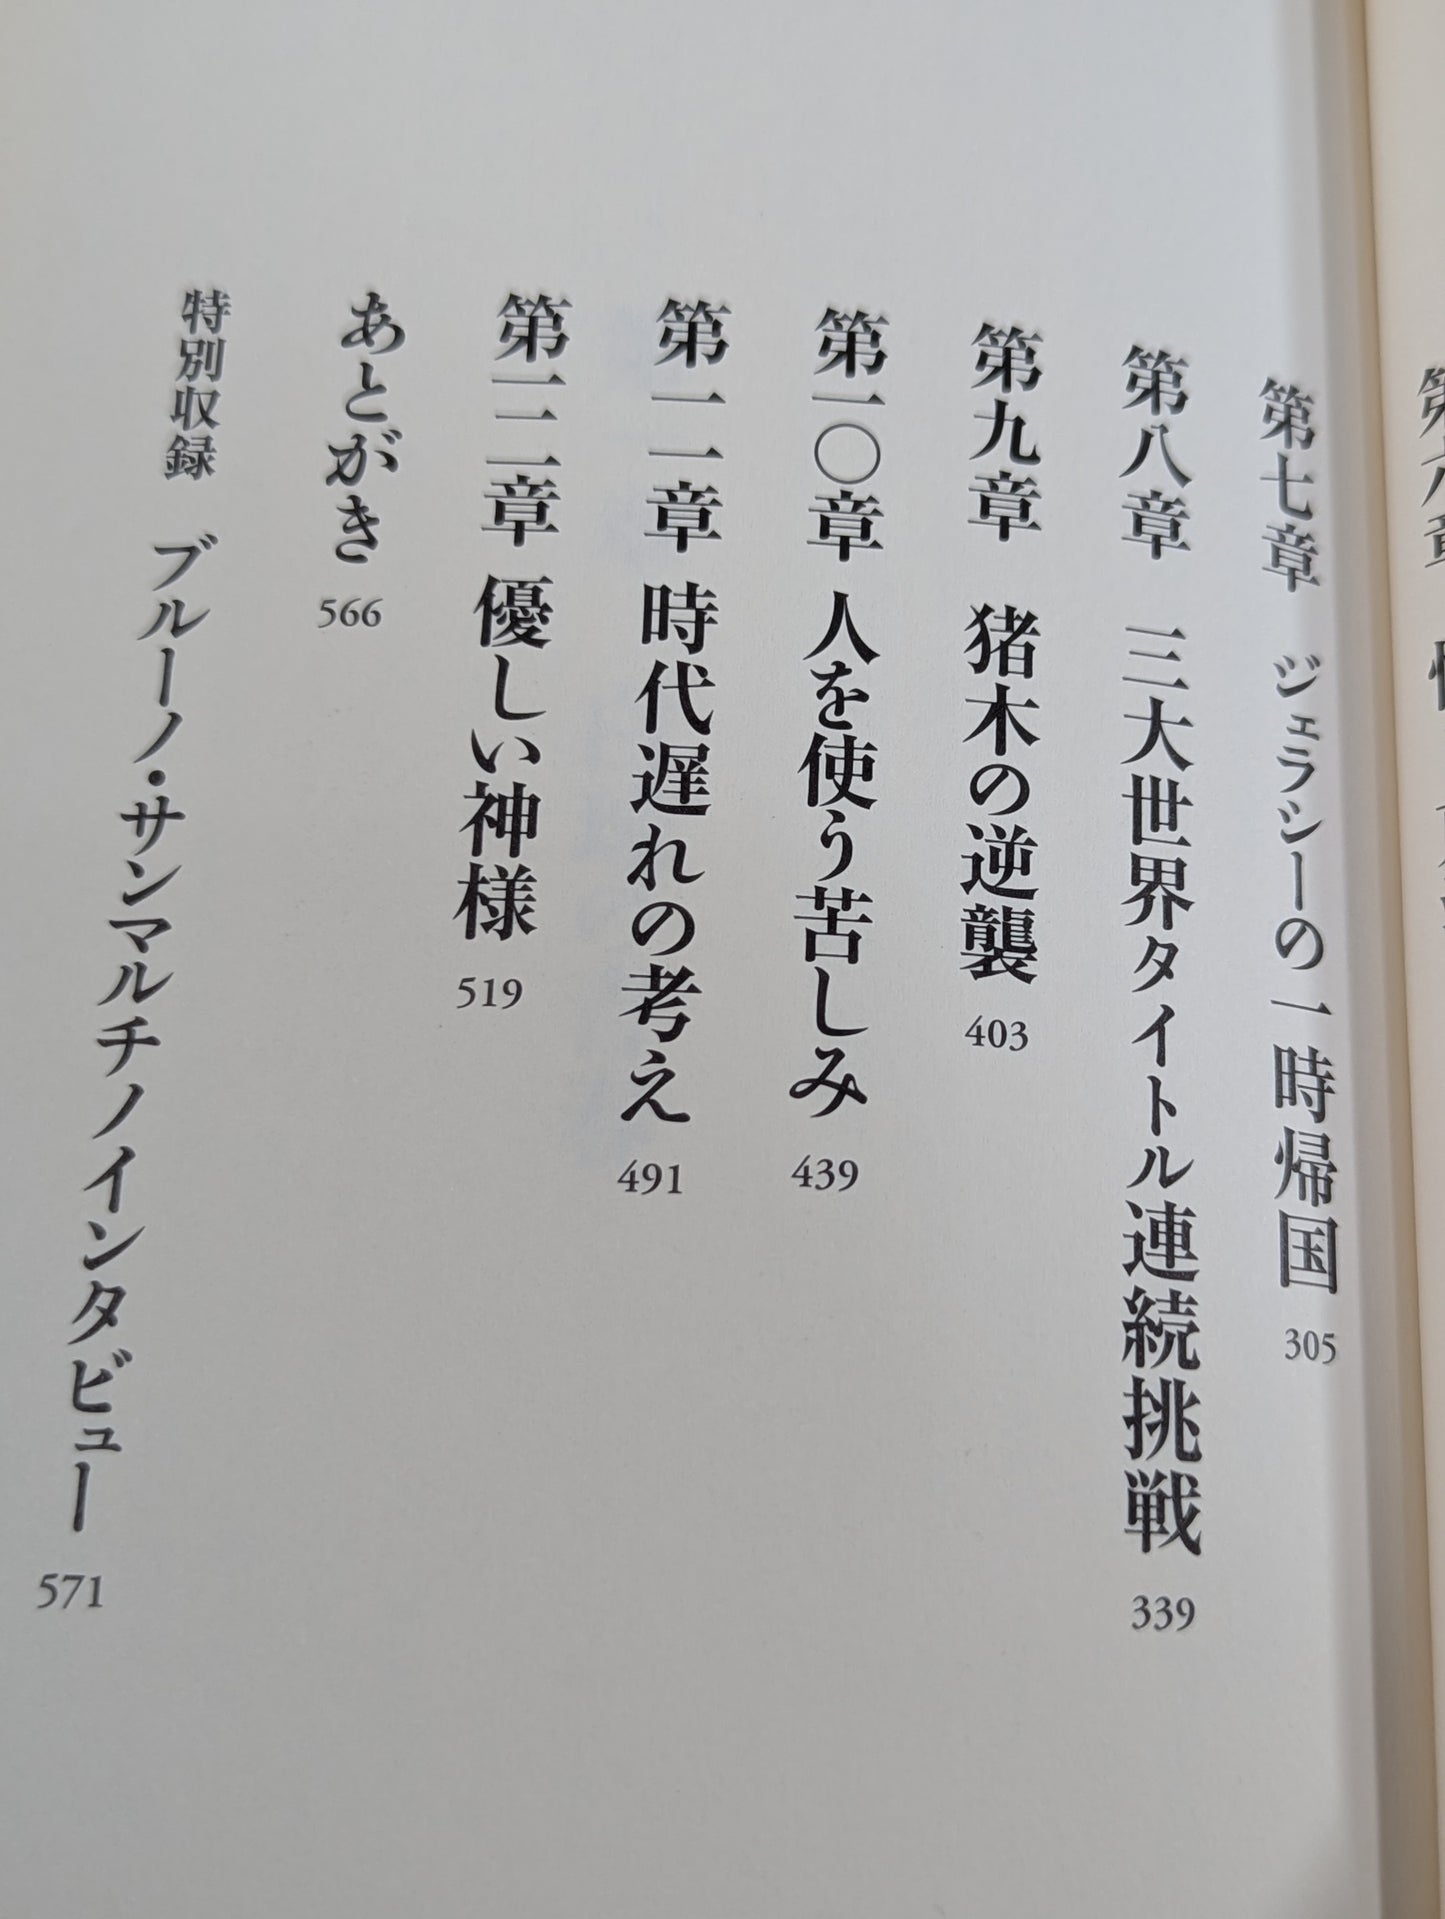 第七章 ジェラシーの一時帰国 305
第八章 三大世界タイトル連続挑戦 339
第九章 猪木の逆襲 403
第一〇章 人を使う苦しみ 439
第一一章 時代遅れの考え 491
第一二章 優しい神様 519
あとがき 566
特別収録 ブルーノ・サンマルチノインタビュー 571